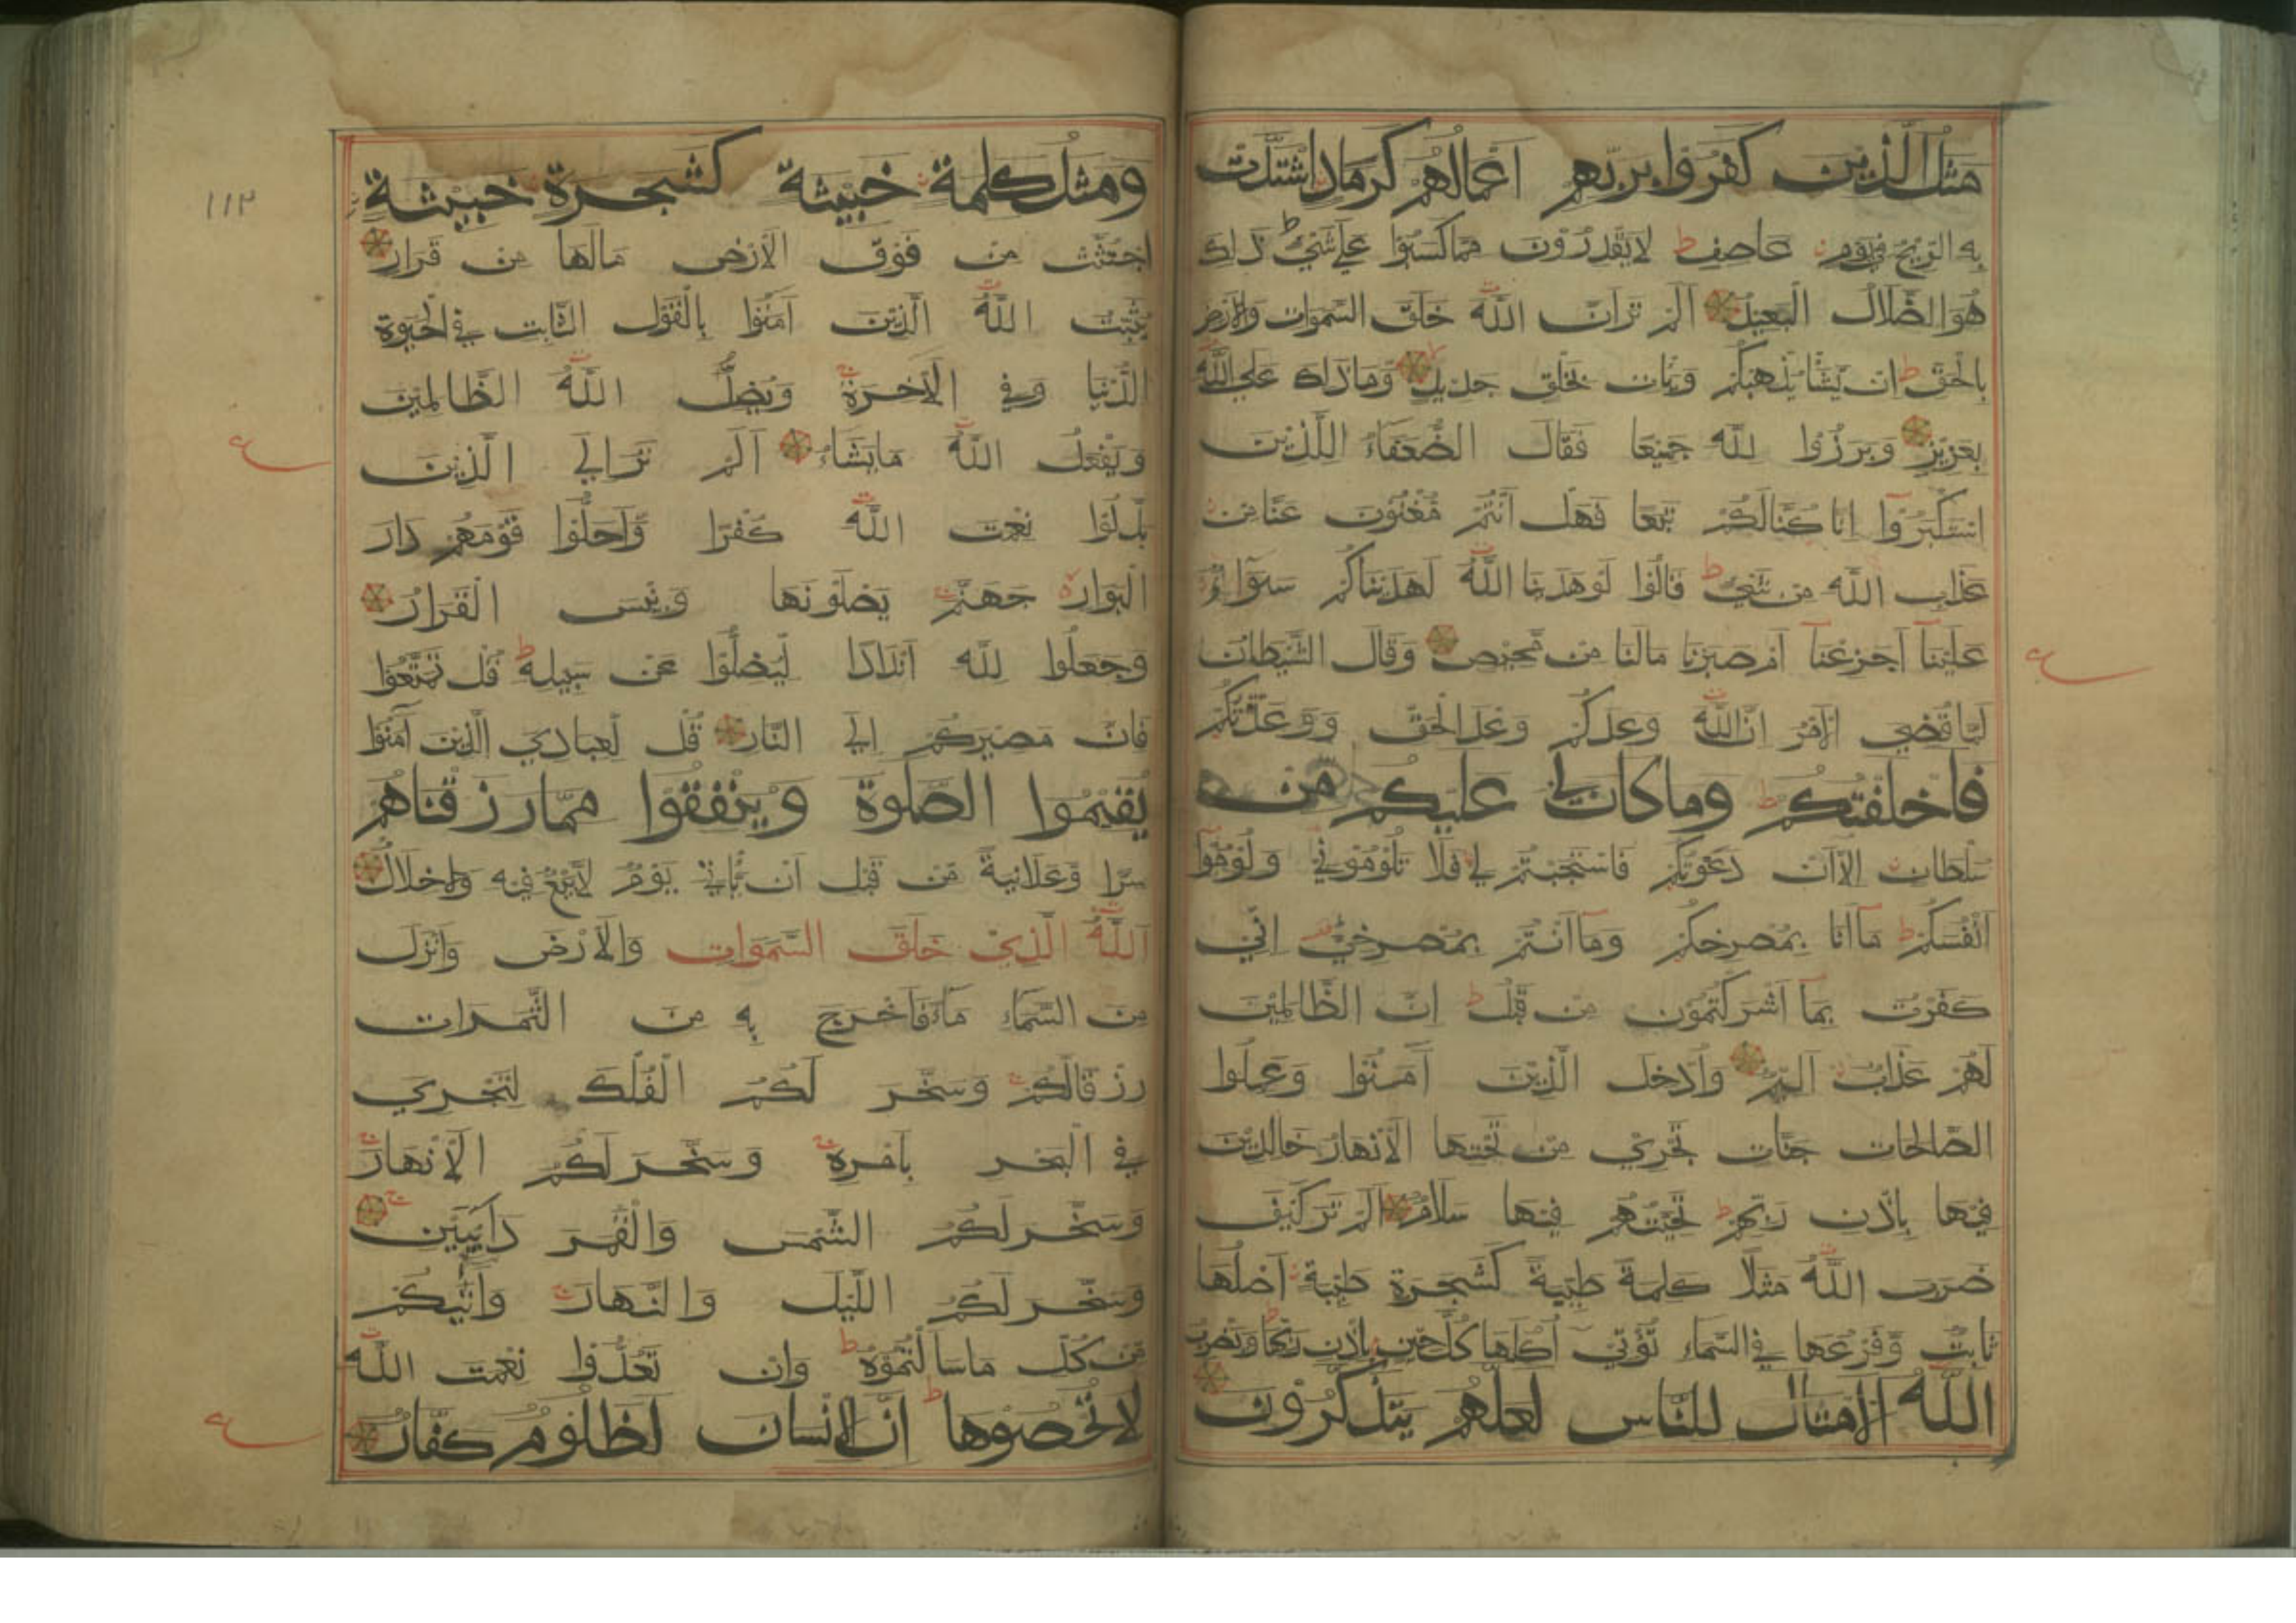 مثل الذين كفروا بربهم اعمالهم كرماد اشتدت
به الريح في يوم عاصف ط لا يقدرون مما كسبوا علي شئ ط ذلك
هو الضلال البعيد الم تر ان الله خلق السموات والارض
بالحق ط ان يشا يذهبكم ويات بخلق جديد وما ذلك علي الله
بعزيز وبرزوا لله جميعا فقال الضعفاء للذين
استكبروا انا كنا لكم تبعا فهل انتم مغنون عنا من
عذاب الله من شئ ط قالوا لو هدينا الله لهديناكم سواء
علينا اجزعنا ام صبرنا مالنا من محيص وقال الشيطان
لما قضي الامر ان الله وعدكم وعد الحق ووعدتكم
فاخلفتكم ط وما كان لي عليكم من
سلطان الا ان دعوتكم فاستجبتم لي فلا تلوموني ولوموا
انفسكم ط ما انا بمصرخكم وما انتم بمصرخي اني
كفرت بما اشركتمون من قبل ط ان الظالمين
لهم عذاب اليم وادخل الذين آمنوا وعملوا
الصالحات جنات تجري من تحتها الانهار خالدين
فيها باذن ربهم ط تحيتهم فيها سلام الم تر كيف
ضرب الله مثلا كلمة طيبة كشجرة طيبة اصلها
ثابت وفرعها في السماء تؤتي اكلها كل حين باذن ربها ط ويضرب
الله الامثال للناس لعلهم يتذكرون
ومثل كلمة خبيثة كشجرة خبيثة
اجتثت من فوق الارض مالها من قرار
يثبت الله الذين آمنوا بالقول الثابت في الحيوة
الدنيا وفي الآخرة ويضل الله الظالمين
ويفعل الله ما يشاء الم تر الي الذين
بدلوا نعمت الله كفرا واحلوا قومهم دار
البوار جهنم يصلونها وبئس القرار
وجعلوا لله اندادا ليضلوا عن سبيله ط قل تمتعوا
فان مصيركم الي النار قل لعبادي الذين آمنوا
يقيموا الصلوة وينفقوا مما رزقناهم
سرا وعلانية من قبل ان ياتي يوم لا بيع فيه ولا خلال
الله الذي خلق السموات والارض وانزل
من السماء ماء فاخرج به من الثمرات
رزقا لكم وسخر لكم الفلك لتجري
في البحر بامره وسخر لكم الانهار
وسخر لكم الشمس والقمر دائبين
وسخر لكم الليل والنهار وآتيكم
من كل ما سالتموه ط وان تعدوا نعمت الله
لا تحصوها ط ان الانسان لظلوم كفار
١١٢